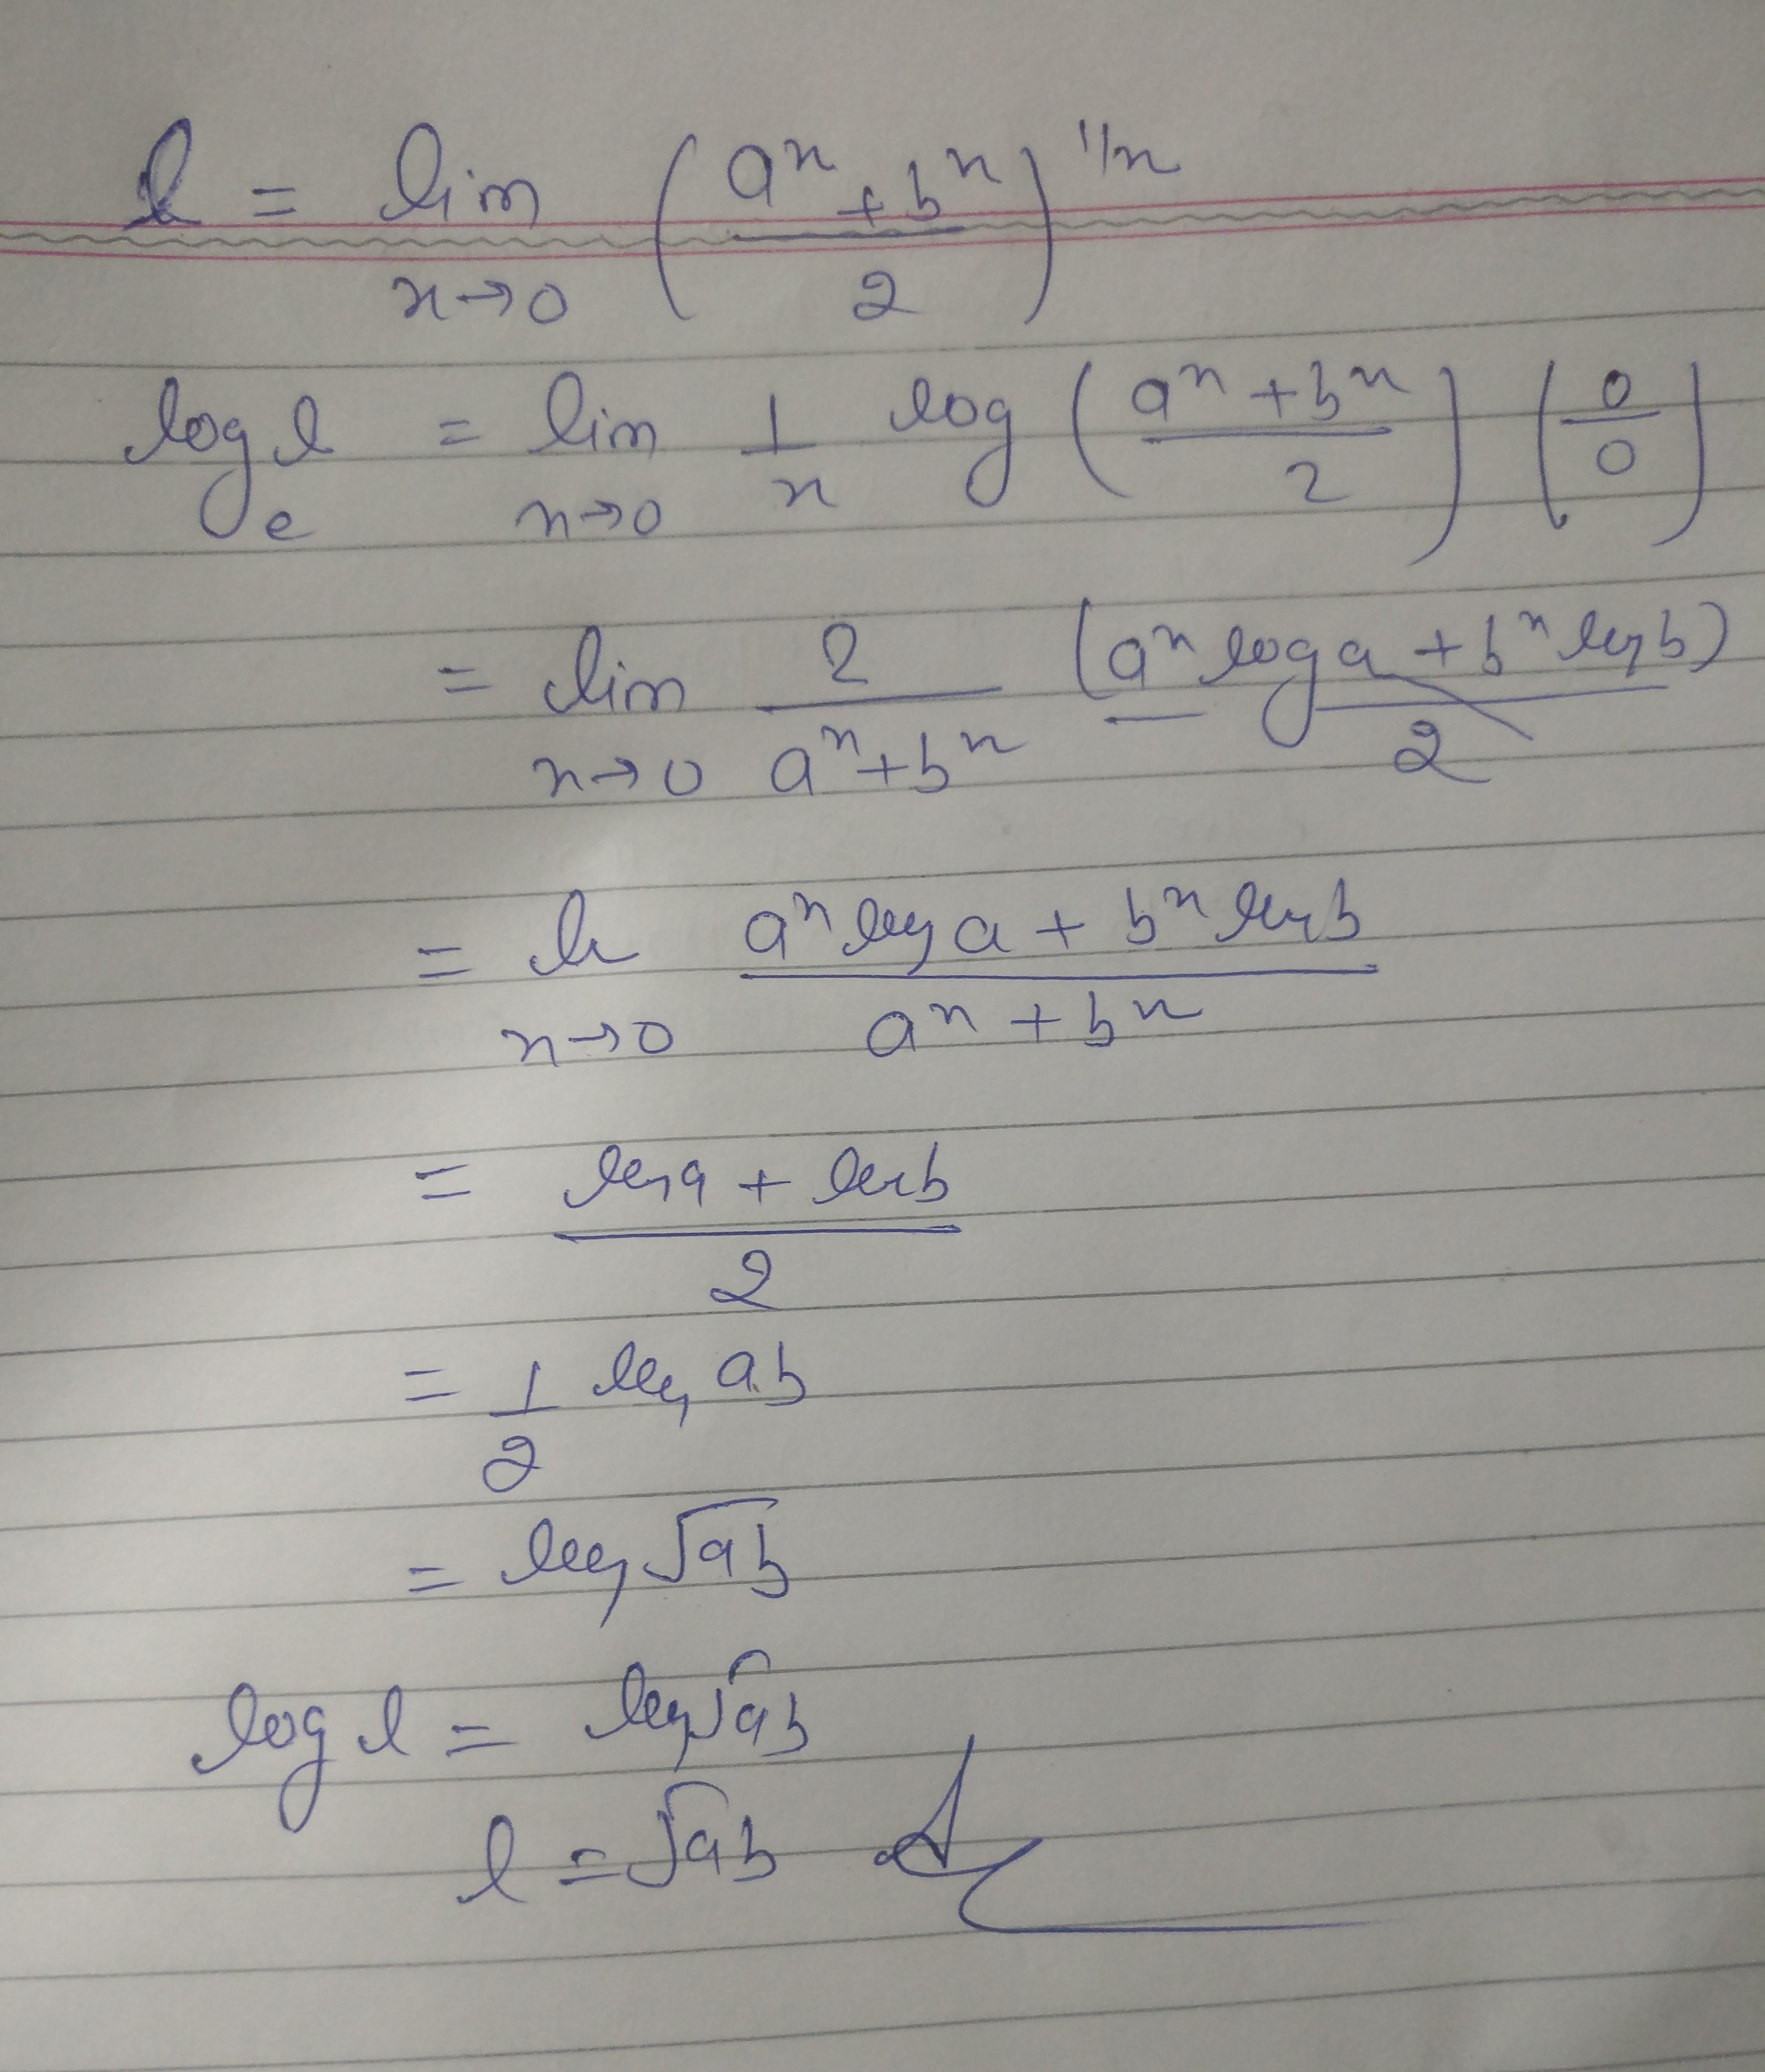 l = lim x→0 ( (a^x + b^x) / 2 )^(1/x)
log_e l = lim x→0 1/x log ( (a^x + b^x) / 2 ) (0/0)
= lim x→0 2 / (a^x + b^x) (a^x log a + b^x log b) / 2
= lim x→0 (a^x log a + b^x log b) / (a^x + b^x)
= (log a + log b) / 2
= 1/2 log ab
= log √ab
log l = log √ab
l = √ab